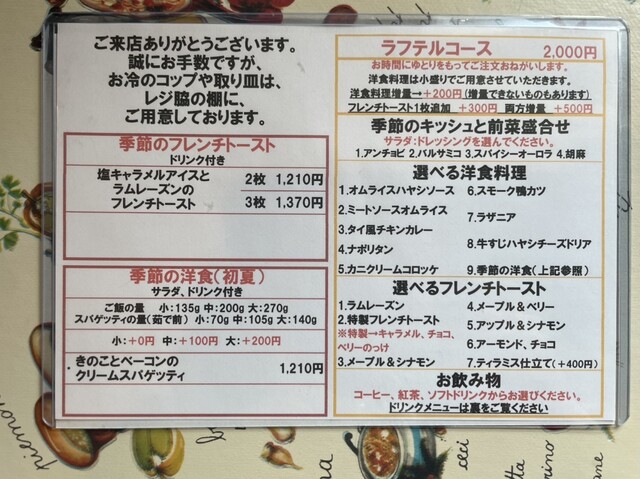 ご来店ありがとうございます。
誠にお手数ですが、
お冷のコップや取り皿は、
レジ脇の棚に、
ご用意しております。
季節のフレンチトースト
ドリンク付き
塩キャラメルアイスと
ラムレーズンの
フレンチトースト
2枚 1,210円
3枚 1,370円
季節の洋食(初夏)
サラダ、ドリンク付き
ご飯の量 小:135g 中:200g 大:270g
スパゲッティの量(茹で前) 小:70g 中:105g 大:140g
小:+0円 中:+100円 大:+200円
・きのことベーコンの
クリームスパゲッティ
1,210円
ラフテルコース 2,000円
お時間にゆとりをもってご注文おねがいします。
洋食料理は小盛りでご用意させていただきます。
洋食料理増量→+200円(増量できないものもあります)
フレンチトースト1枚追加 +300円 両方増量 +500円
季節のキッシュと前菜盛合せ
サラダ:ドレッシングを選んでください。
1.アンチョビ 2.バルサミコ 3.スパイシーオーロラ 4.胡麻
選べる洋食料理
1.オムライスハヤシソース
2.ミートソースオムライス
3.タイ風チキンカレー
4.ナポリタン
5.カニクリームコロッケ
6.スモーク鴨カツ
7.ラザニア
8.牛すじハヤシチーズドリア
9.季節の洋食(上記参照)
選べるフレンチトースト
1.ラムレーズン
2.特製フレンチトースト
※特製→キャラメル、チョコ、
ベリーのっけ
3.メープル&シナモン
4.メープル&ベリー
5.アップル&シナモン
6.アーモンド、チョコ
7.ティラミス仕立て(+400円)
お飲み物
コーヒー、紅茶、ソフトドリンクからお選びください。
ドリンクメニューは裏をご覧ください